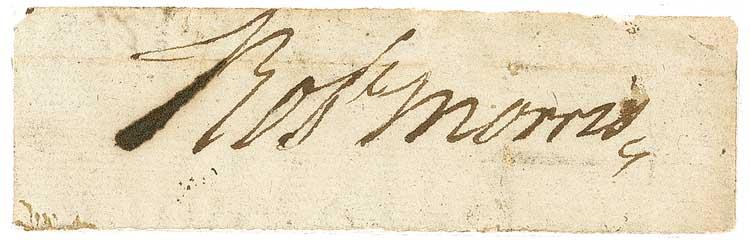 Robt Morris